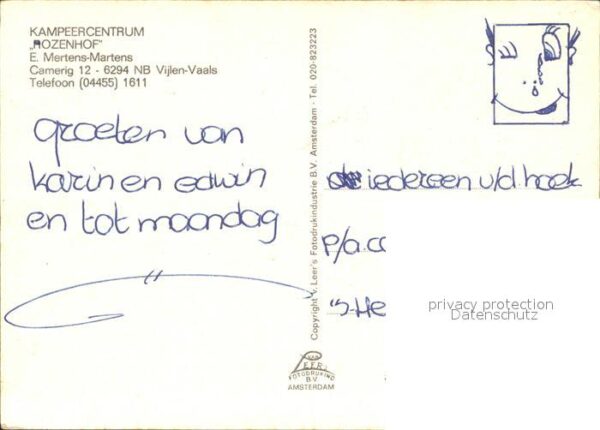 KAMPEERCENTRUM
„ROZENHOF"
E. Mertens-Martens
Camerig 12 - 6294 NB Vijlen-Vaals
Telefoon (04455) 1611
groeten van
karin en edwin
en tot maandag
Copyright v. Leer's Fotodrukindustrie B.V. Amsterdam - Tel. 020-823223
iedereen u/d hoek
p/a
"HE
privacy protection
Datenschutz
VAN
LEER'S
FOTODRUKIND
B.V.
AMSTERDAM